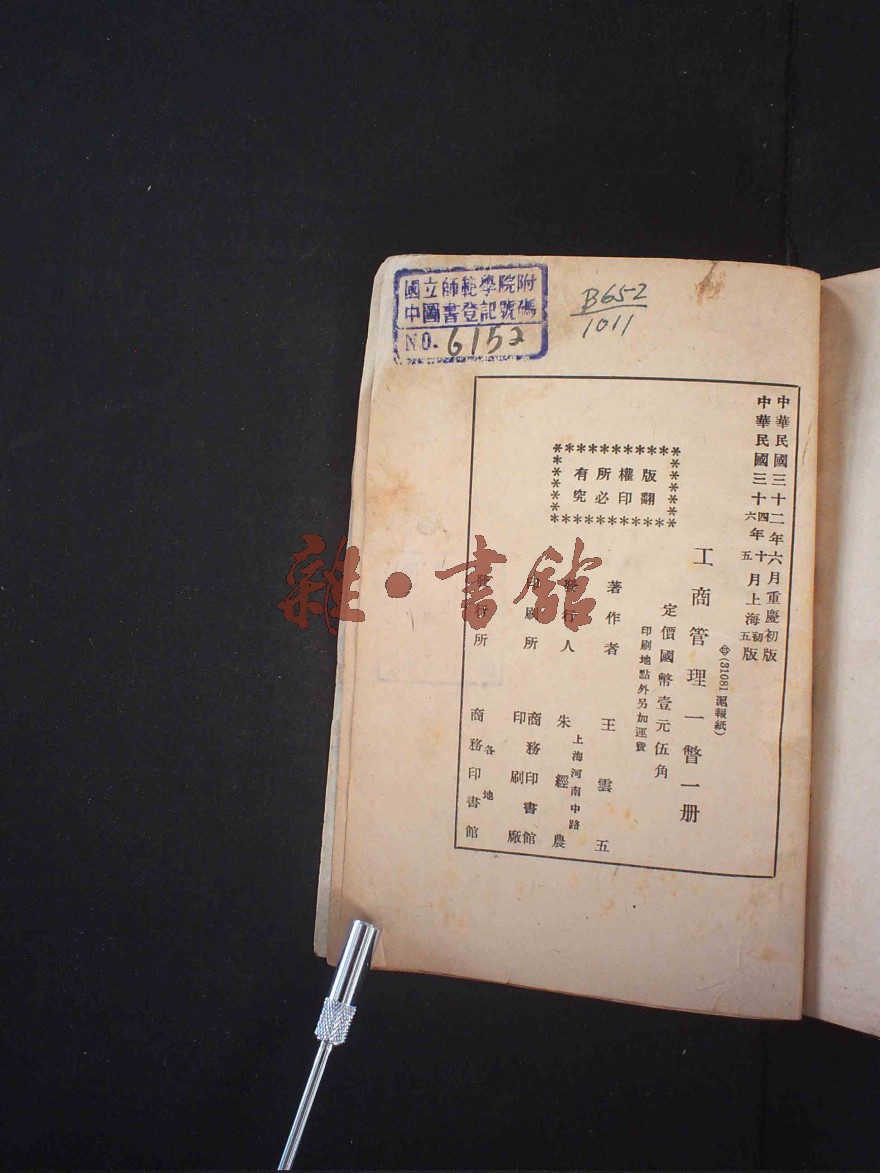 國立師範學院附
中圖書登記號碼
NO. 6152
B652
1011
中華民國三十二年六月重慶初版
中華民國三十四年十月上海初版
六 五 五
㊥(31081 滬報紙)
工商管理一瞥一册
定價國幣壹元伍角
印刷地點外另加運費
版權所有
翻印必究
著作者 王雲五
上海河南中路
發行人 朱經農
印刷所 商務印書館
印刷廠
發行所 商務印書館
各地
雜·書館